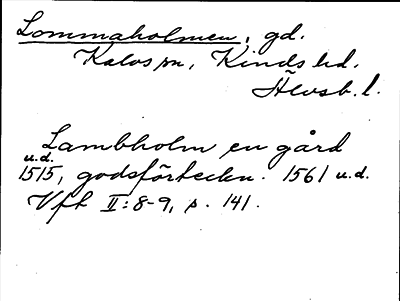 Lommaholmen, gd.
Kalvs sn, Kinds hd.
Älvsb. l.
Lambholm en gård
u.d.
1515, godsförteckn. 1561 u.d.
Vft II:8-9, s. 141.